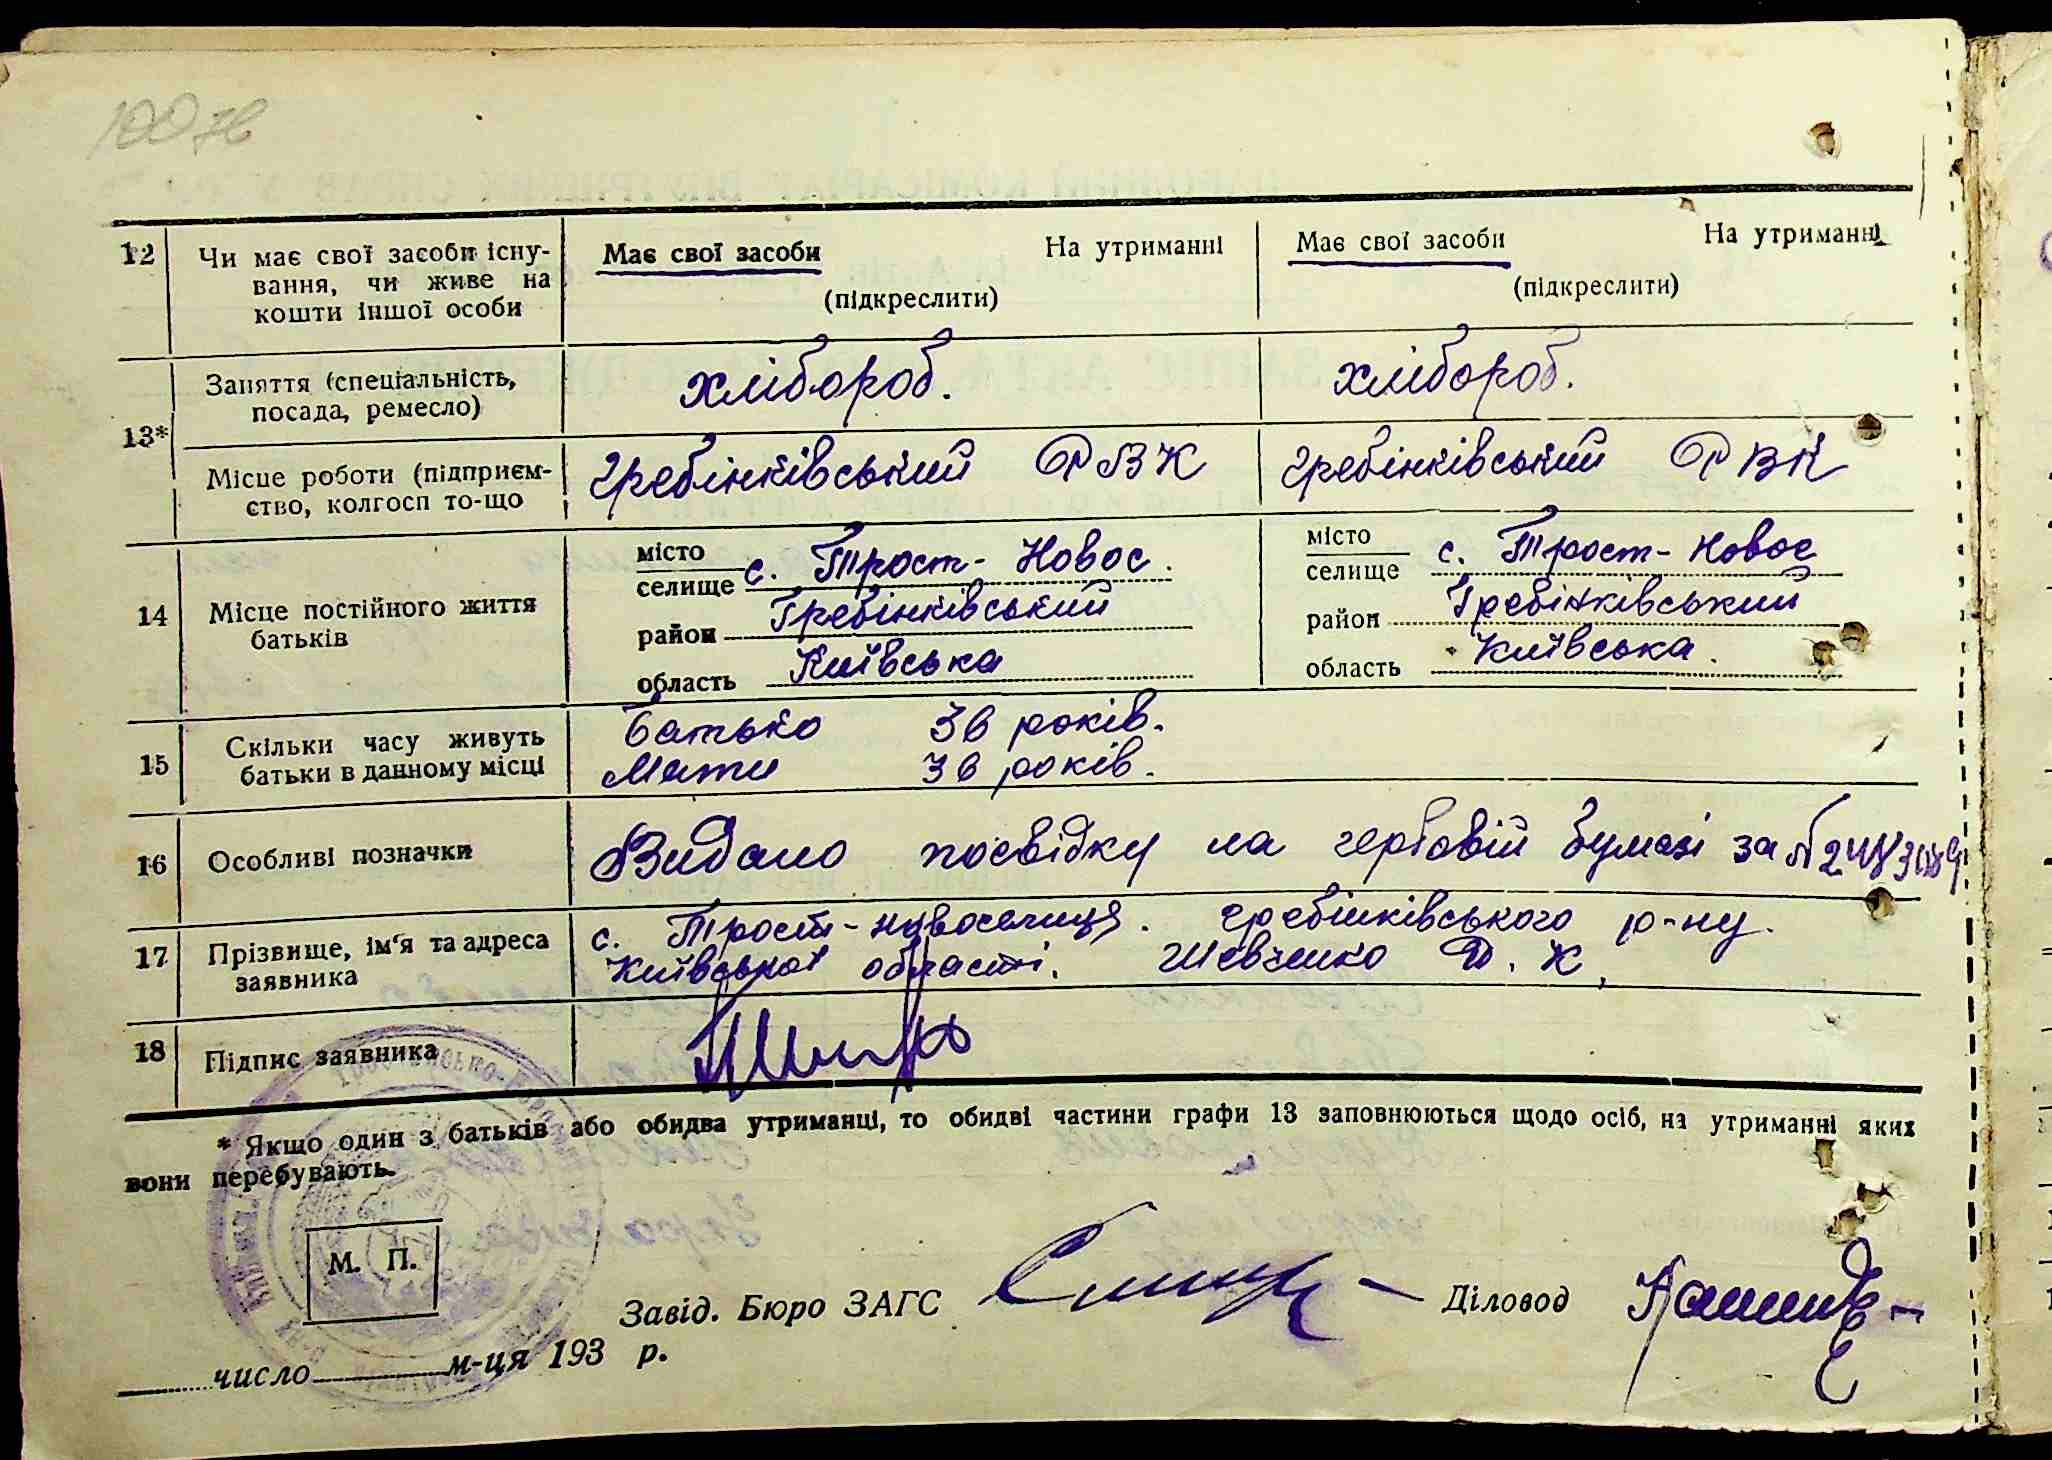 100 зв
12 Чи має свої засоби існу-
вання, чи живе на
кошти іншої особи
Має свої засоби На утриманні
(підкреслити)
Має свої засоби На утриманні
(підкреслити)
13*
Заняття (спеціальність,
посада, ремесло)
хлібороб.
хлібороб.
Місце роботи (підприєм-
ство, колгосп то-що
Гребінківський РВК
Гребінківський РВК
14 Місце постійного життя
батьків
місто
селище с. Трост-Новос.
район Гребінківський
область Київська
місто
селище с. Трост-Новос
район Гребінківський
область Київська.
15 Скільки часу живуть
батьки в данному місці
Батько 36 років.
Мати 36 років.
16 Особливі позначки
Видано посвідку на гербовій бумазі за №
17 Прізвище, ім'я та адреса
заявника
с. Трост-Новоселиця. Гребінківського р-ну.
Київської області. Шевченко Д. К.
18 Підпис заявника
* Якщо один з батьків або обидва утриманці, то обидві частини графи 13 заповнюються щодо осіб, на утриманні яких
вони перебувають.
М. П.
Завід. Бюро ЗАГС
Діловод
число м-ця 193 р.